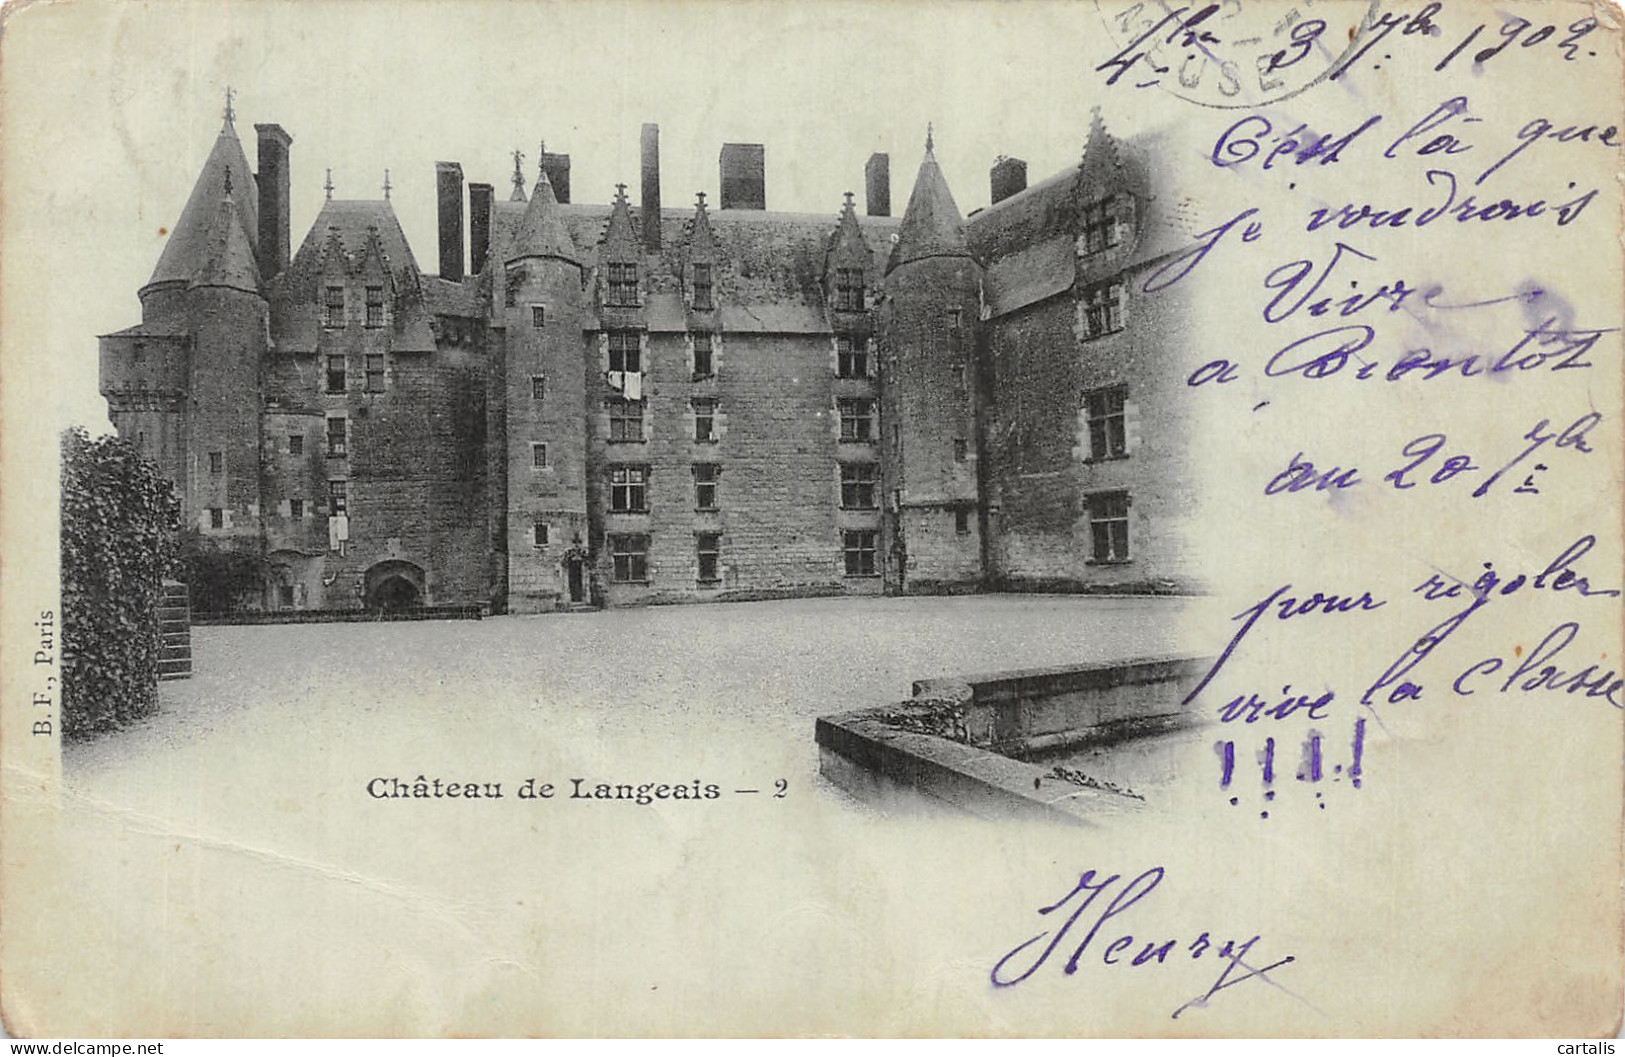 3 7bre 1902.
USE
C'est là que
je voudrais
Vivre
a Bientôt
au 20 7bre
pour rigoler
vive la classe
!!!!
Henry
Château de Langeais — 2
B. F., Paris
https://www.delcampe.net
cartalis